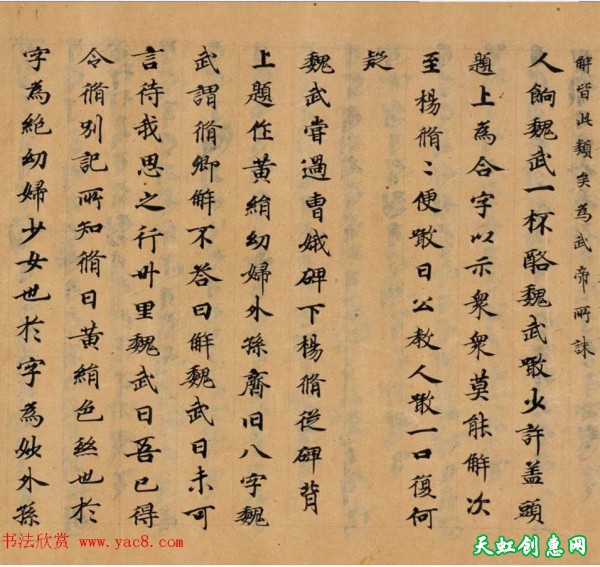 解皆此類矣為武帝所誅
人餉魏武一杯酪魏武噉少許盖頭
題上為合字以示衆衆莫能解次
至楊脩〻便噉曰公教人噉一口復何
疑
魏武嘗過曹娥碑下楊脩従碑背
上題作黃絹幼婦外孫齎臼八字魏
武謂脩卿解不荅曰解魏武曰未可
言待我思之行卅里魏武曰吾已得
令脩別記所知脩曰黃絹色絲也於
字為絕幼婦少女也於字為妙外孫
书法欣赏 www.yac8.com
天虹创惠网